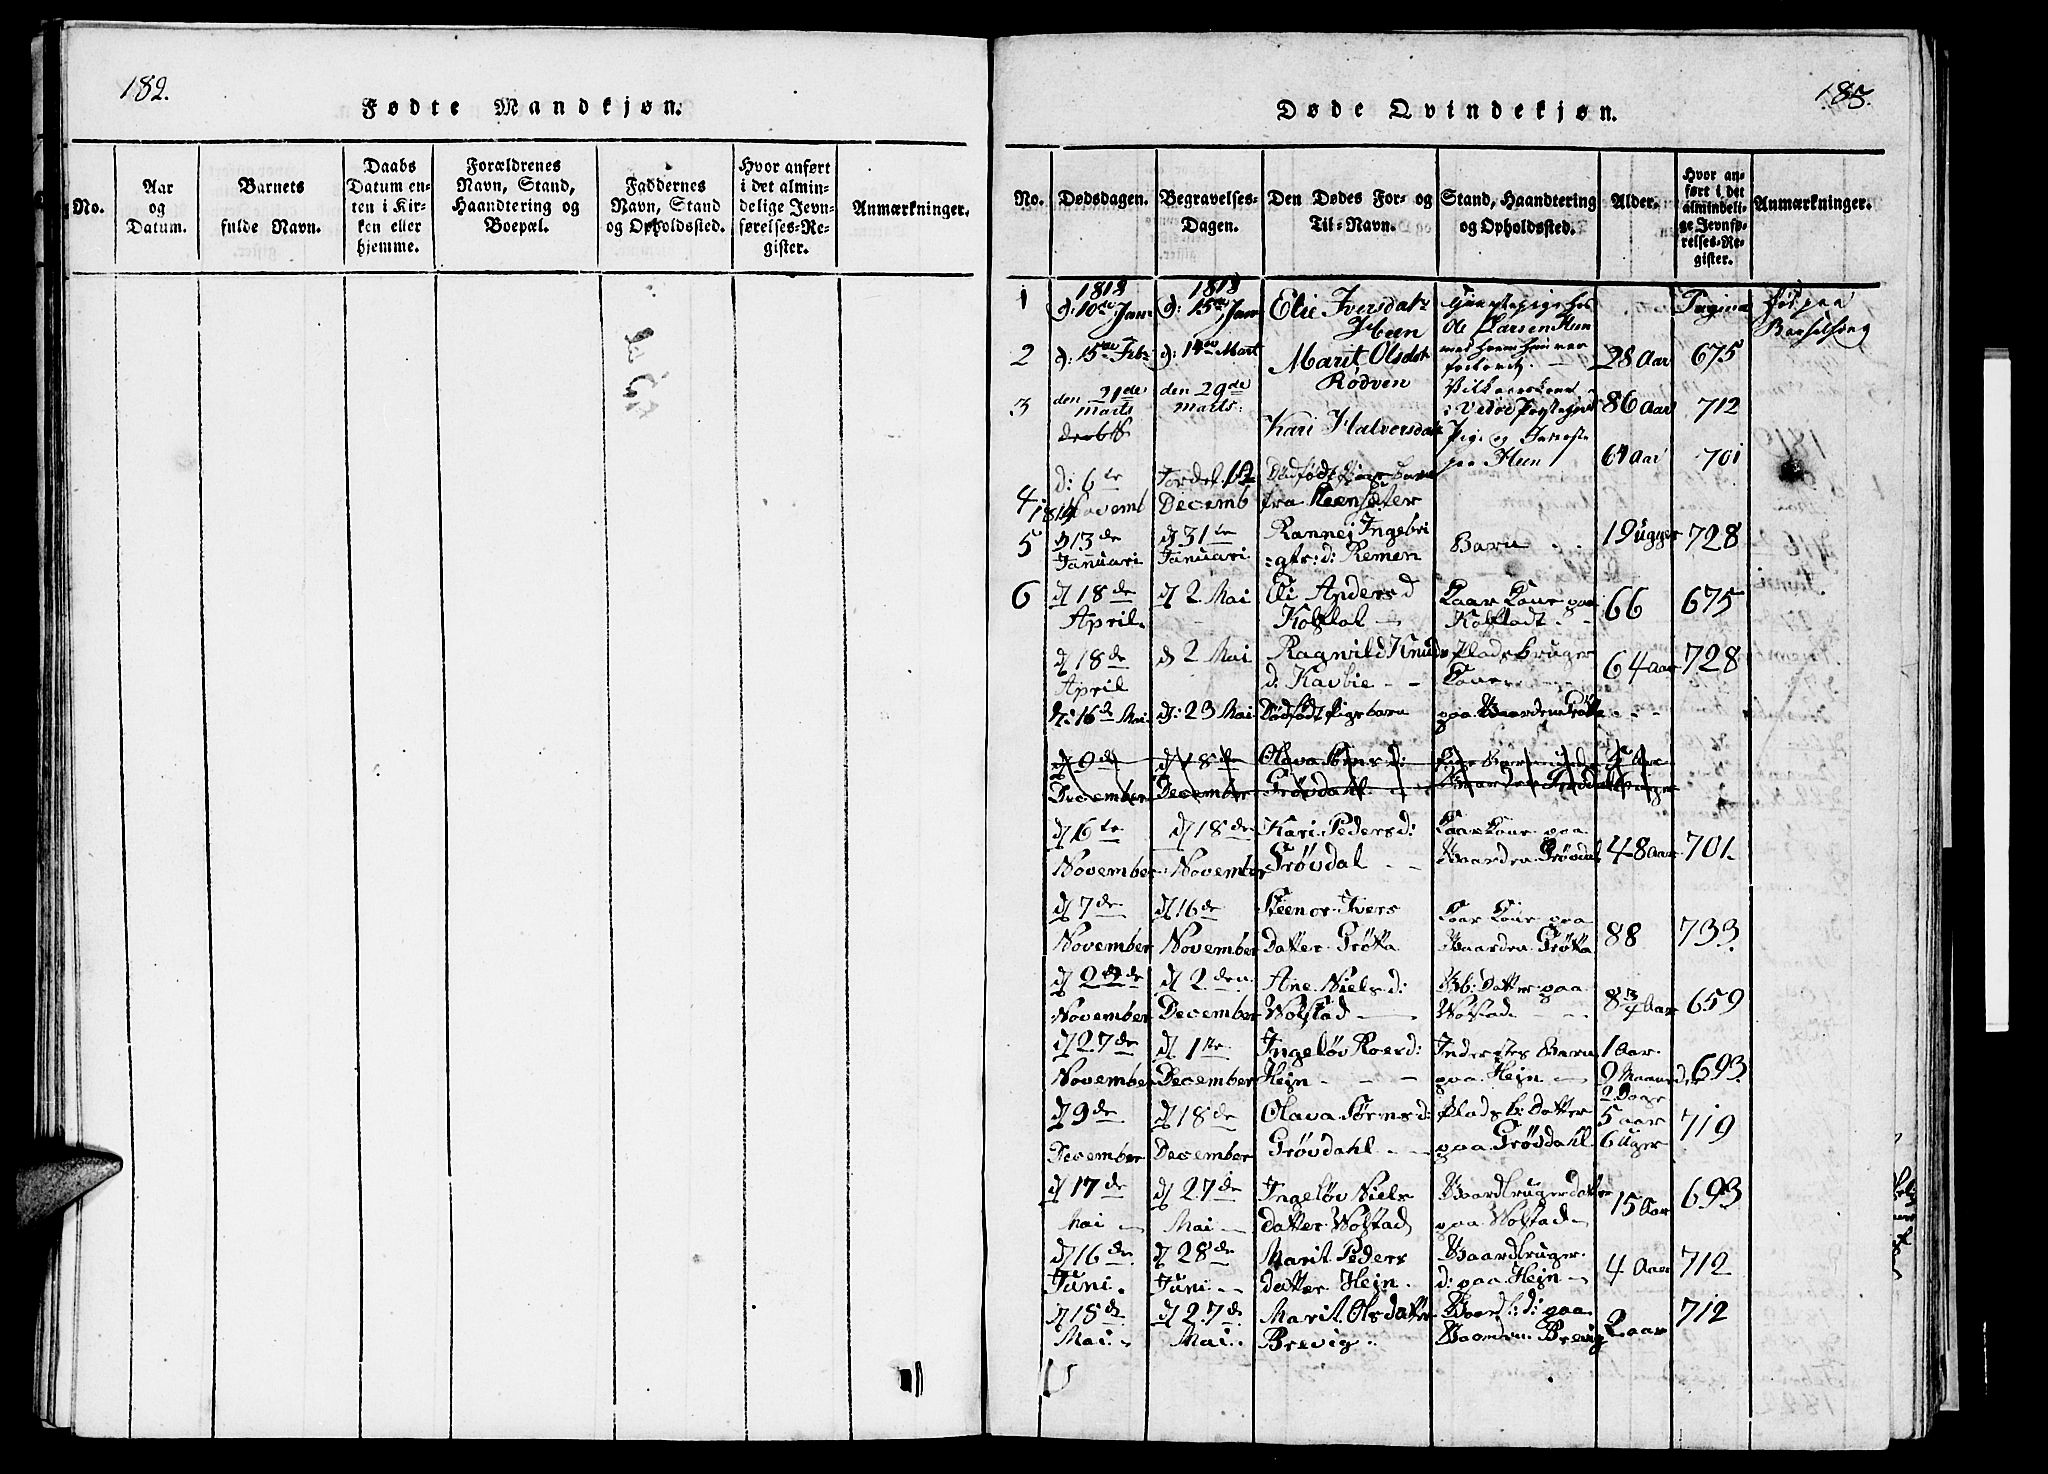 182.
Fødte Mandkjøn.
No.
Aar
og
Datum.
Barnets
fulde Navn.
Daabs
Datum en-
ten i Kir-
ken eller
hjemme.
Forældrenes
Navn, Stand,
Haandtering og
Boepæl.
Faddernes
Navn, Stand
og Opholdssted.
Hvor anført
i det almin-
delige Jevn-
førelses-Re-
gister.
Anmærkninger.
185.
Døde Qvindekjøn.
No.
Dødsdagen.
Begravelses-
Dagen.
Den Dødes For- og
Til-Navn.
Stand, Haandtering
og Opholdssted.
Alder.
Hvor an-
ført i det
almindeli-
ge Jevnfø-
relses-Re-
gister.
Anmærkninger.
1
1818
d: 10de Jan
1818
d: 15de Jan
Elie Iversdatr
Heen
Ole Larsen Heen
Pagina
Død paa
Barselseng
2
d: 15de Febr
d: 14de Mart
Marit Olsdatr
Rødven
28 Aar
675
3
den 21de
marts
den 29de
marts
Kari Halversdatr
86 Aar
712
Pige og
paa Heen
64 Aar
701
4
d: 6te
Novemb
1819
Decemb
12
Dødfødt Pige barn
fra Heensæter
5
d 13de
Januari
d 31te
Januari
Rannej Ingebri
=gts: d: Remen
Barn
19 ugger
728
6
d 18de
April
d 2 Mai
Eli Anders d
Kolstad
Kaar Kone paa
Kolstadt
66
675
d 18de
April
d 2 Mai
Ragnild Knuds
d: Kavlie
Pladsbruger
Kone
64 Aar
728
d: 16de Mai
d: 23 Mai
Dødfødt Pigebarn
paa Gaarden Grøtta
d 9de
December
d 18de
December
Olava Sørens d:
Grøvdahl
d 6te
November
d 18de
November
Kari Peders d:
Grøvdal
Kaar Kone paa
Gaarden Grøvdal
48 Aar
701.
d 7de
November
d 16de
November
Steenor Ivers
datter Grøtta
Kaar Kone paa
Gaarden Grøtta
88
733.
d 22de
November
d 2den
December
Ane Niels d:
Wolstad
Gb: Datter paa
Wolstad
8 3/4 Aar
659
d 27de
November
d 1ste
December
Ingeløv Roers d:
Hejn
Inderstes Barn
paa Hejn
1 Aar
9 Maaneder
2 Dage
693
d 9de
December
d 18de
December
Olava Sørens d:
Grøvdahl
Pladsb: Datter
paa Grøvdahl
5 aar
6 Uger
719
d 17de
Mai
d 27de
Mai
Ingeløv Niels
datter Wolstad
Gaardbruger datter
paa Wolstad
15 Aar
693
d 16de
Juni
d 28de
Juni
Marit Peders
datter Hejn
Gaardbruger
d: paa Hejn
4 Aar
712
d 18de
Mai
d 27de
Mai
Marit Olsdatter
Brevig
Gaardb: d: paa
Gaarden Brevig
2 aar
712